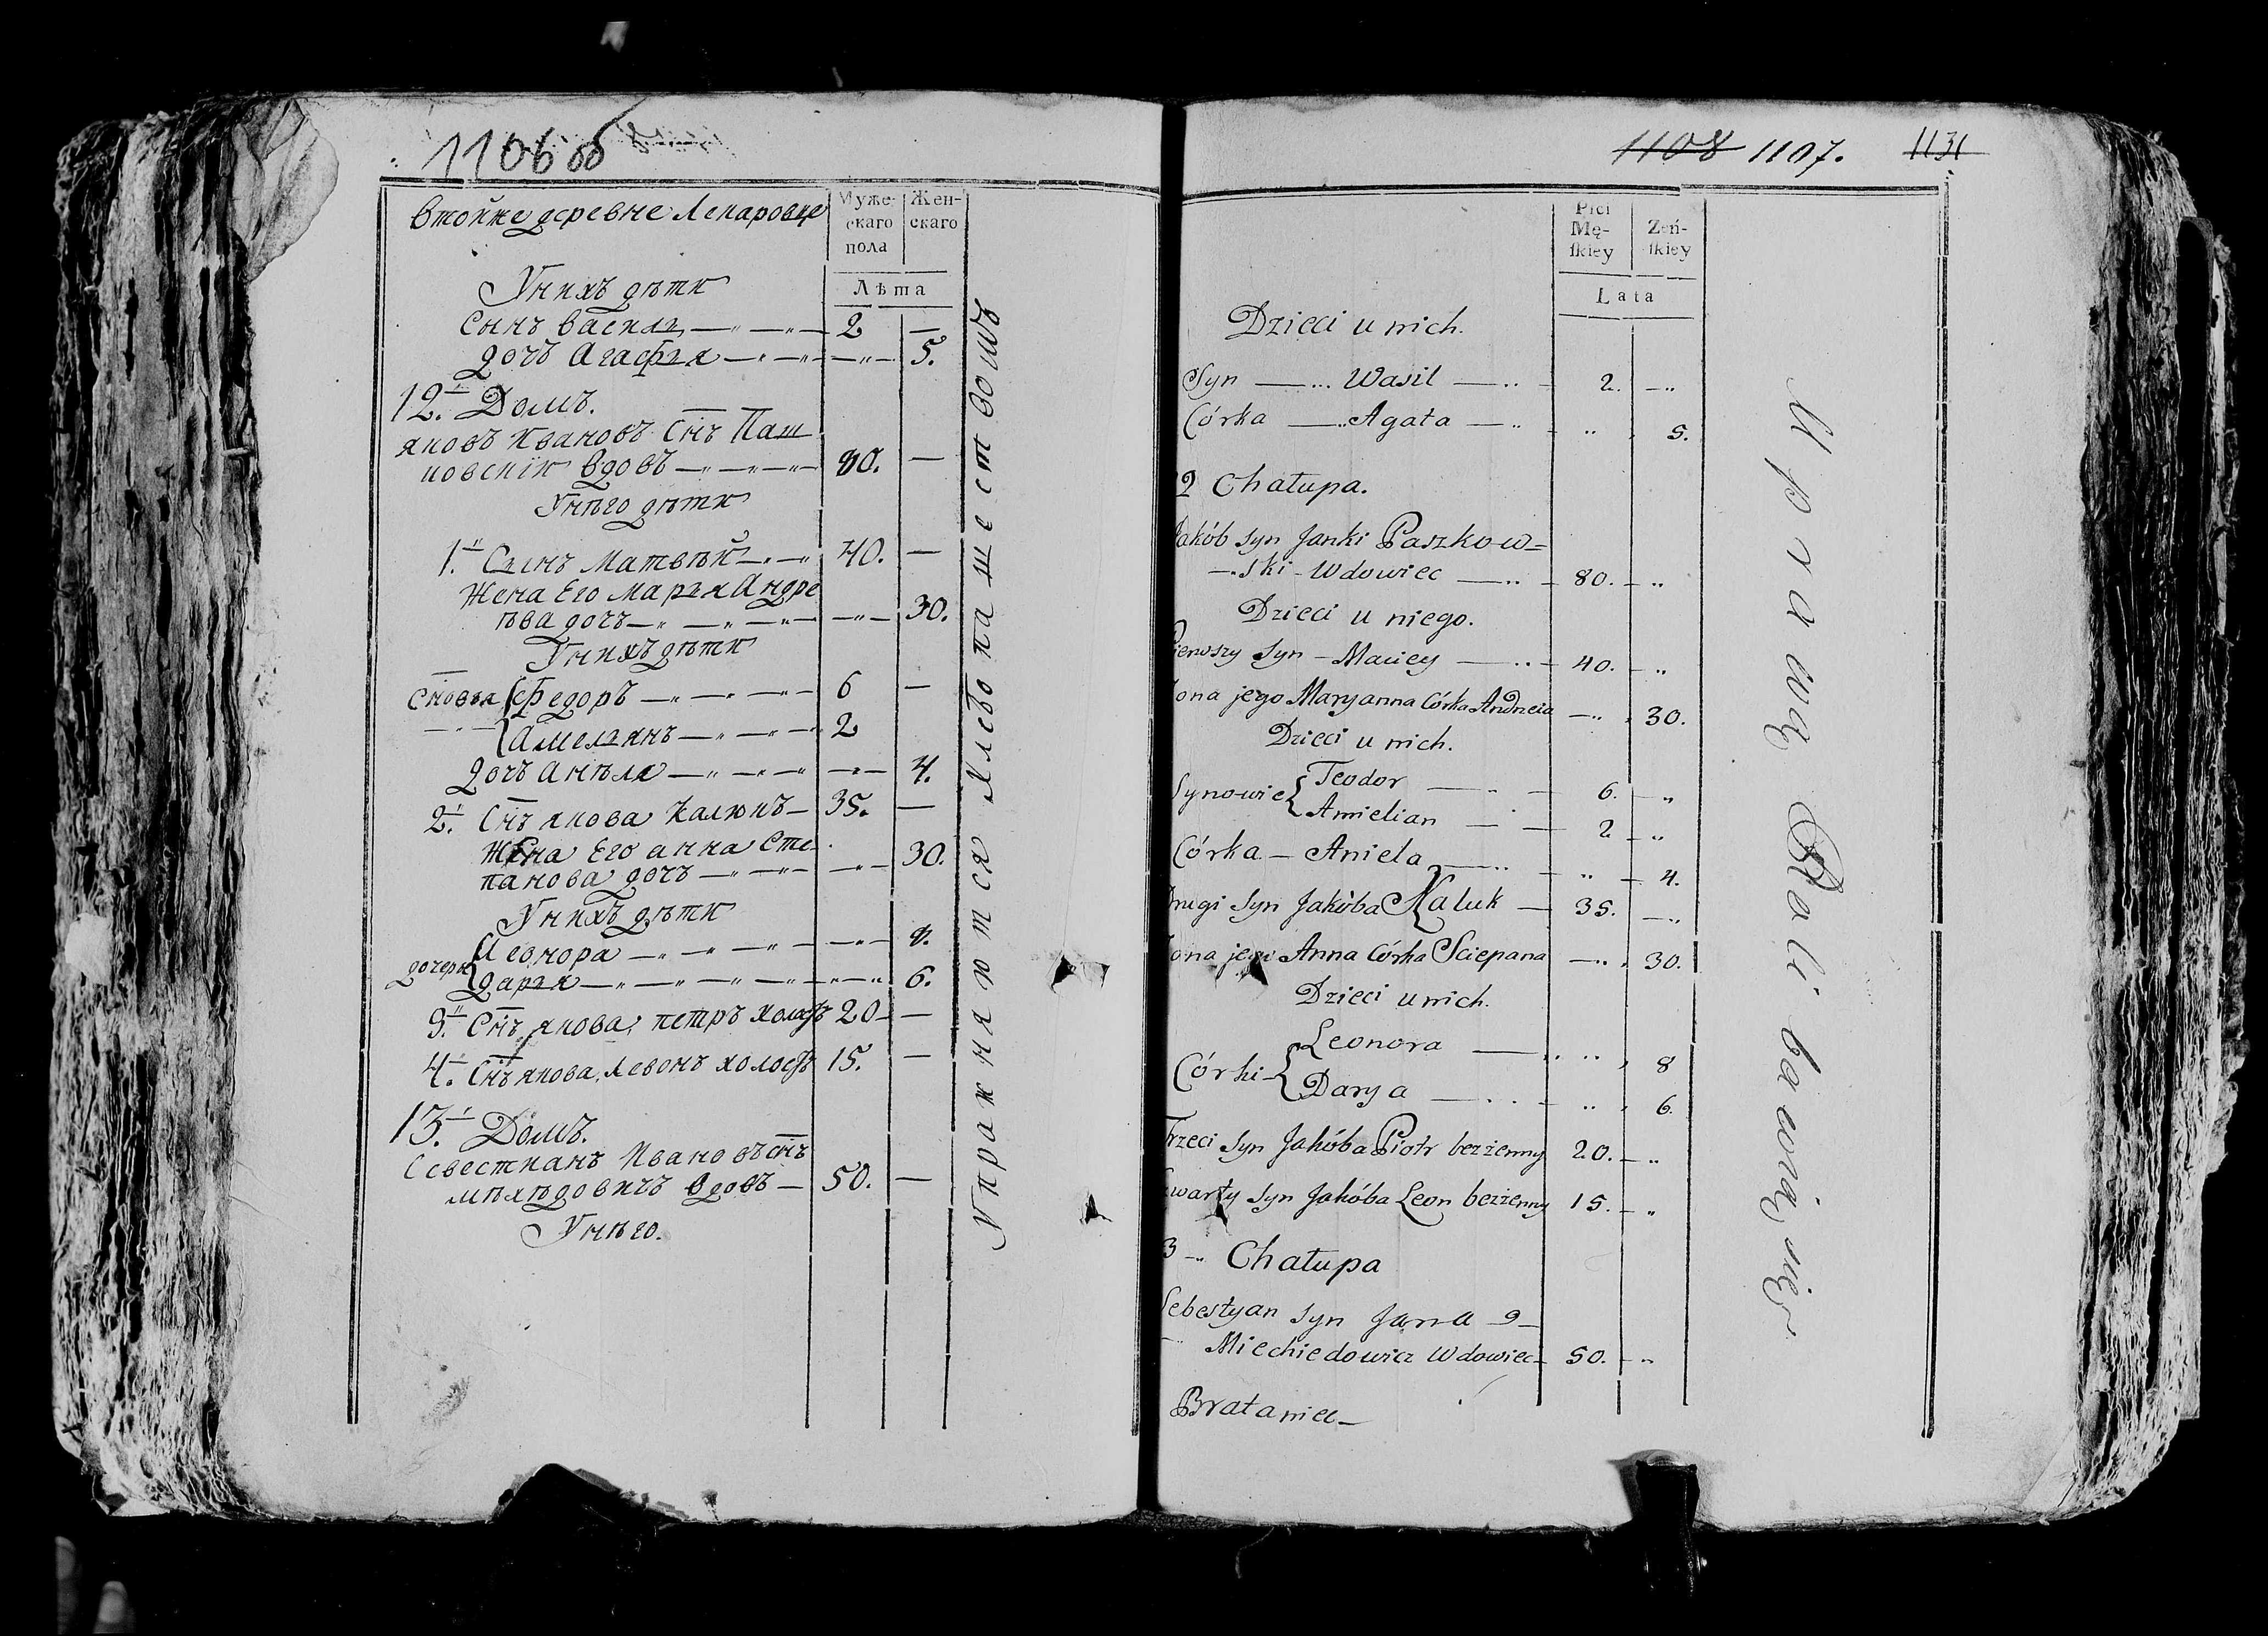 1106 об
втойже деревне Лекаровце
Муже-
скаго
пола
Жен-
скаго
Лѣта
Унихъ дѣти
Сынъ василь — 2 —
дочь Агафья — — 5.
12. Домъ.
яковъ Ивановъ Снъ Паш
ковскiи вдовъ — 80. —
Унѣго дѣти
1. Сынъ Матвѣй — 40. —
Жена Его Марья Андре
ѣва дочь — — 30.
Унихъ дѣти
Сновья { Федоръ — 6 —
{ Амельянъ — 2
дочь Анѣля — — 4.
2. Снъ якова Калюкъ — 35. —
Жена Его анна Сте
панова дочь — — 30.
Унихъ дѣти
дочеры { Леонора — — 8.
{ дарья — — 6.
3. Снъ якова, петръ холостъ 20 —
4. Снъ якова, Левонъ холостъ 15. —
13. Домъ.
Севестианъ Ивановъ снъ
мѣхѣдовичъ вдовъ — 50. —
Унѣго.
Упражняются Хлебопашествомъ
1108 1107. 1131
Płci
Mę-
ſkiey
Żeń-
ſkiey
Lata
Dzieci u nich.
Syn — Wasil — 2. — „
Córka — Agata — „ 5.
2 Chałupa.
Jakób syn Janki Paszkow=
ski - Wdowiec — 80. — „
Dzieci u niego.
Pierwszy Syn — Maciey — 40. — „
Żona jego Maryanna Córka Andrzeia — „ 30.
Dzieci u nich.
Synowie { Teodor — 6. — „
{ Amielian — 2 — „
Córka — Aniela — „ — 4.
Drugi Syn Jakóba Kaluk — 35. — „
Żona jego Anna Córka Sciepana — „ 30.
Dzieci u nich.
Córki { Leonora — „ 8
{ Darya — „ 6.
Trzeci Syn Jakóba Piotr bezżenny 20. — „
Czwarty Syn Jakóba Leon bezżenny 15. — „
3 — Chałupa
Sebestyan syn Jana
Miechiedowicz Wdowiec — 50. — „
Brataniec —
Uprawą Roli bawią się